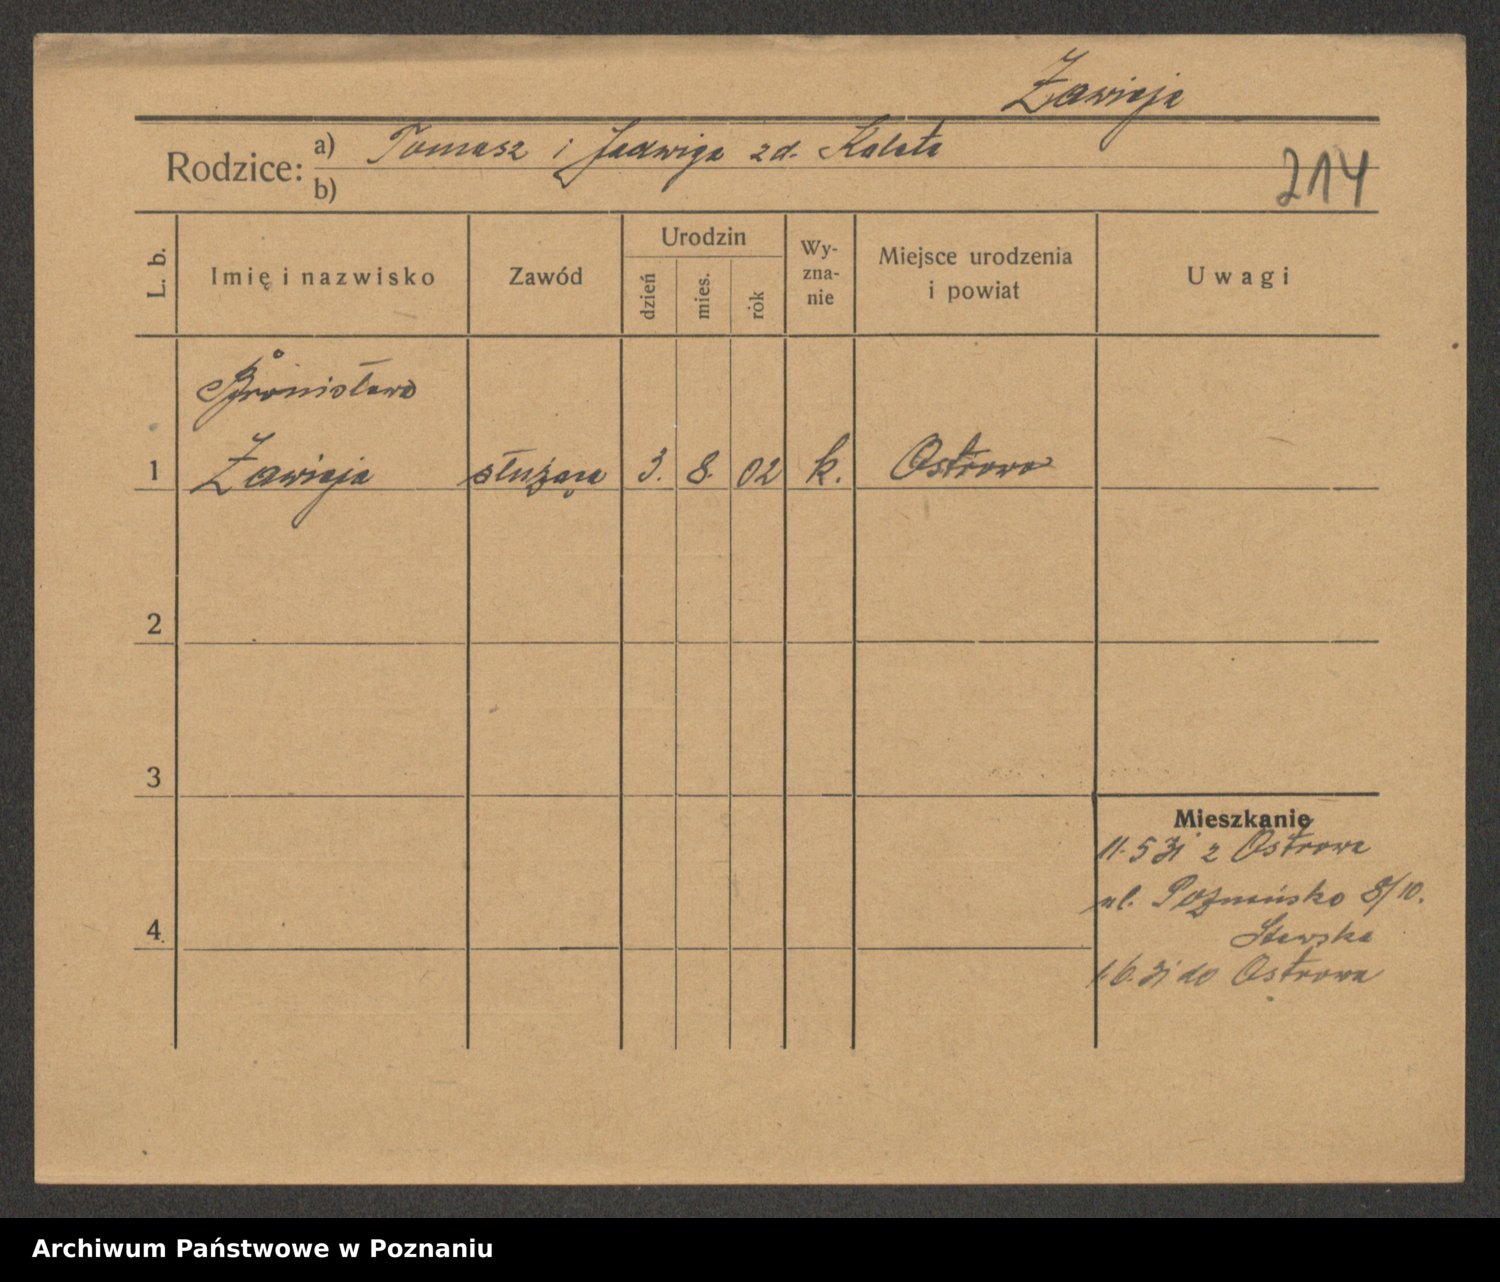 Zawieja
Rodzice: a) Tomasz i Jadwiga zd. Kaleta
b)
214
L. b.
Imię i nazwisko
Zawód
Urodzin
dzień
mies.
rok
Wy-
zna-
nie
Miejsce urodzenia
i powiat
Uwagi
Bronisława
1 Zawieja służąca 3. 8. 02 k. Ostrowo
2
3
4
Mieszkanie
11.5 31 z Ostrowa
ul. Poznańska 8/10.
1.6.31 do Ostrowa
Archiwum Państwowe w Poznaniu